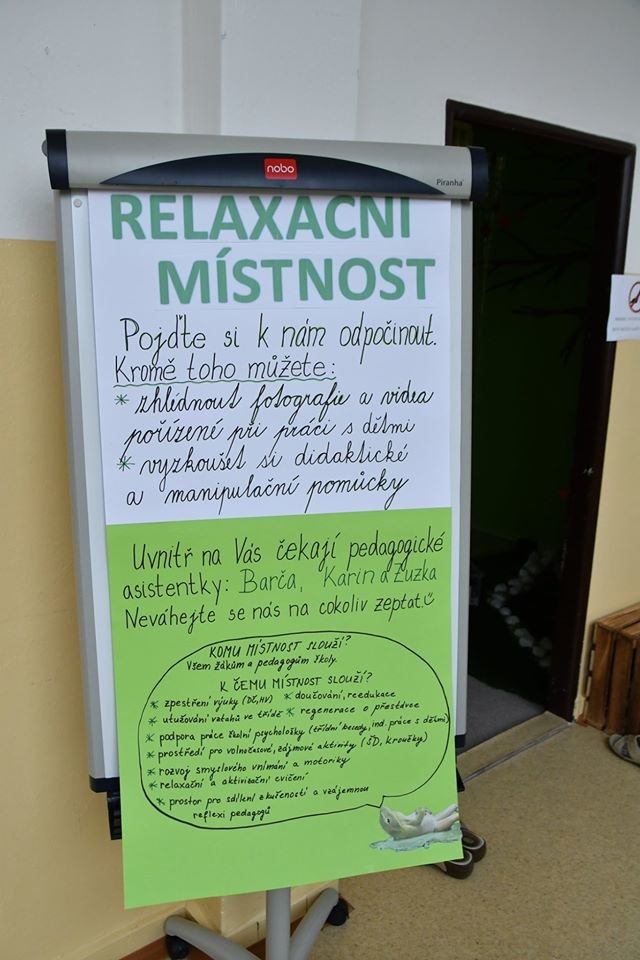 nobo
Piranha
RELAXAČNÍ
MÍSTNOST
Pojďte si k nám odpočinout.
Kromě toho můžete:
* zhlédnout fotografie a videa
pořízené při práci s dětmi
* vyzkoušet si didaktické
a manipulační pomůcky
Uvnitř na Vás čekají pedagogické
asistentky: Barča, Karin a Zuzka
Neváhejte se nás na cokoliv zeptat.☺
KOMU MÍSTNOST SLOUŽÍ?
Všem žákům a pedagogům školy.
K ČEMU MÍSTNOST SLOUŽÍ?
* zpestření výuky (Dč, HV) * doučování, reedukace
* utužování vztahů ve třídě * regenerace o přestávce
* podpora práce školní psycholožky (třídní besedy, ind. práce s dětmi)
* prostředí pro volnočasové, zájmové aktivity (ŠD, kroužky)
* rozvoj smyslového vnímání a motoriky
* relaxační a aktivizační cvičení
* prostor pro sdílení zkušeností a vzájemnou
reflexi pedagogů